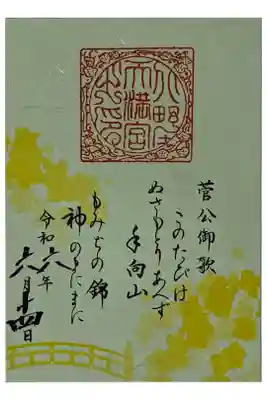 菅公御歌
このたびは
ぬさもとりあへず
手向山
もみぢの錦
神のまにまに
令和六年
六月十四日